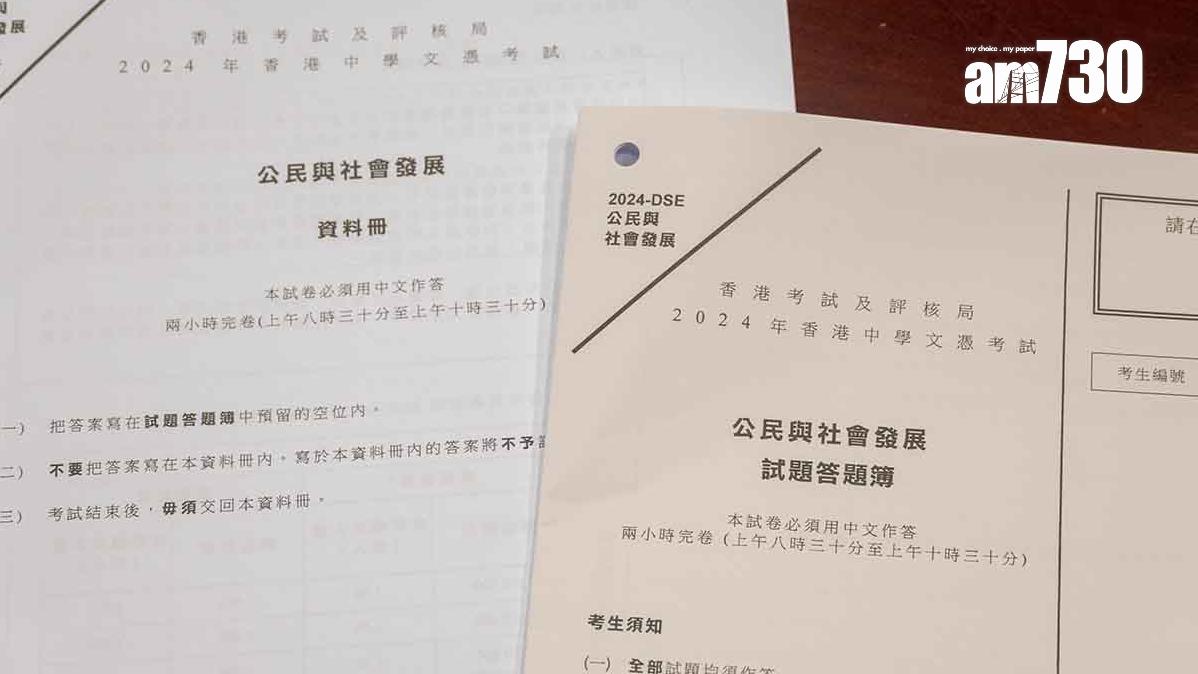 發展
香港考試及評核局
2024年香港中學文憑考試
公民與社會發展
資料冊
本試卷必須用中文作答
兩小時完卷(上午八時三十分至上午十時三十分)
一) 把答案寫在試題答題簿中預留的空位內。
二) 不要把答案寫在本資料冊內。寫於本資料冊內的答案將不予
三) 考試結束後，毋須交回本資料冊。
my choice . my paper
am730
2024-DSE
公民與
社會發展
請在
香港考試及評核局
2024年香港中學文憑考試
考生編號
公民與社會發展
試題答題簿
本試卷必須用中文作答
兩小時完卷 (上午八時三十分至上午十時三十分)
考生須知
(一) 全部試題均須作答